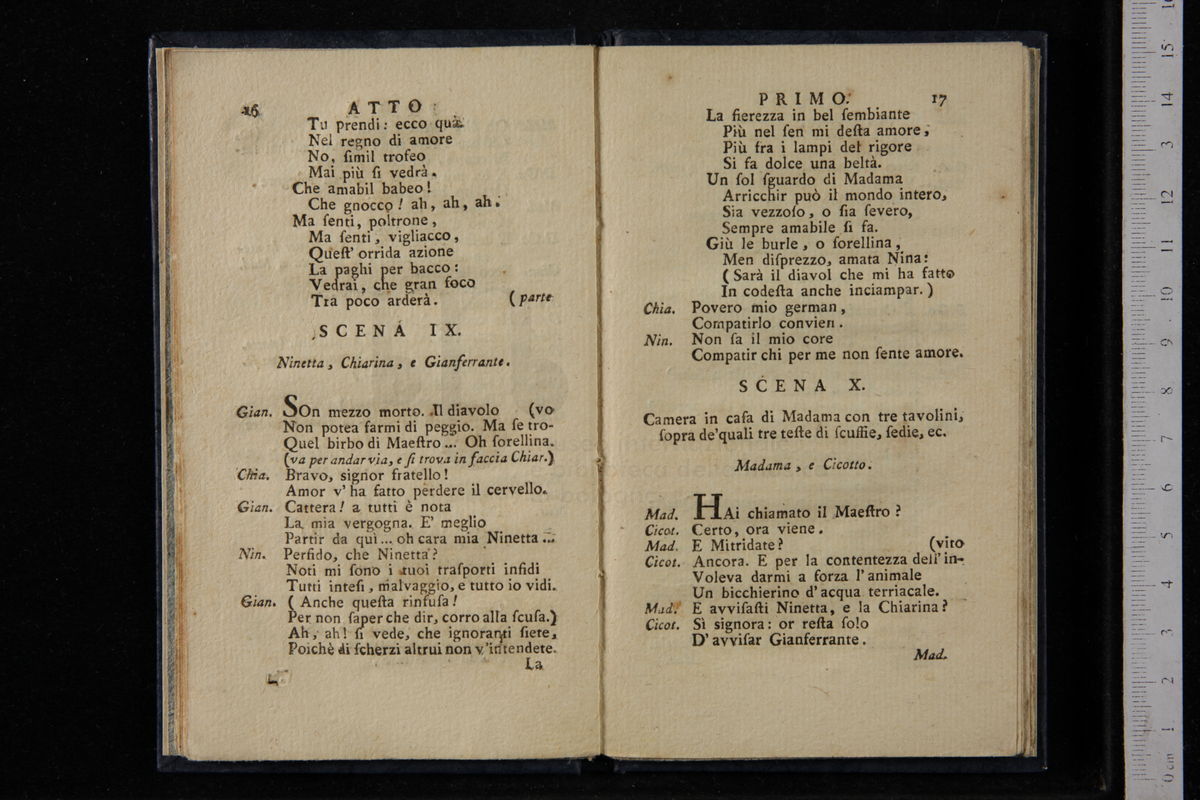 16 ATTO
Tu prendi: ecco quà.
Nel regno di amore
No, ſimil trofeo
Mai più ſi vedrà.
Che amabil babeo!
Che gnocco! ah, ah, ah.
Ma ſenti, poltrone,
Ma ſenti, vigliacco,
Queſt' orrida azione
La paghi per bacco:
Vedrai, che gran foco
Tra poco arderà. (parte
SCENA IX.
Ninetta, Chiarina, e Gianferrante.
Gian. SOn mezzo morto. Il diavolo (vo
Non potea farmi di peggio. Ma ſe tro-
Quel birbo di Maeſtro... Oh ſorellina.
(va per andar via, e ſi trova in faccia Chiar.)
Chia. Bravo, signor fratello!
Amor v' ha fatto perdere il cervello.
Gian. Cattera! a tutti è nota
La mia vergogna. E' meglio
Partir da quì... oh cara mia Ninetta...
Nin. Perfido, che Ninetta?
Noti mi ſono i tuoi traſporti infidi
Tutti inteſi, malvaggio, e tutto io vidi.
Gian. (Anche queſta rinfuſa!
Per non ſaper che dir, corro alla ſcuſa.)
Ah, ah! ſi vede, che ignoranti ſiete,
Poichè di ſcherzi altrui non v'intendete.
La
PRIMO. 17
La fierezza in bel ſembiante
Più nel ſen mi deſta amore,
Più fra i lampi del rigore
Si fa dolce una beltà.
Un ſol ſguardo di Madama
Arricchir può il mondo intero,
Sia vezzoſo, o ſia ſevero,
Sempre amabile ſi fa.
Giù le burle, o ſorellina,
Men diſprezzo, amata Nina:
(Sarà il diavol che mi ha fatto
In codeſta anche inciampar.)
Chia. Povero mio german,
Compatirlo convien.
Nin. Non ſa il mio core
Compatir chi per me non ſente amore.
SCENA X.
Camera in caſa di Madama con tre tavolini,
ſopra de'quali tre teſte di ſcuffie, ſedie, ec.
Madama, e Cicotto.
Mad. HAi chiamato il Maeſtro?
Cicot. Certo, ora viene.
Mad. E Mitridate? (vito
Cicot. Ancora. E per la contentezza dell'in-
Voleva darmi a forza l'animale
Un bicchierino d'acqua terriacale.
Mad. E avviſaſti Ninetta, e la Chiarina?
Cicot. Sì signora: or reſta ſolo
D'avviſar Gianferrante.
Mad.